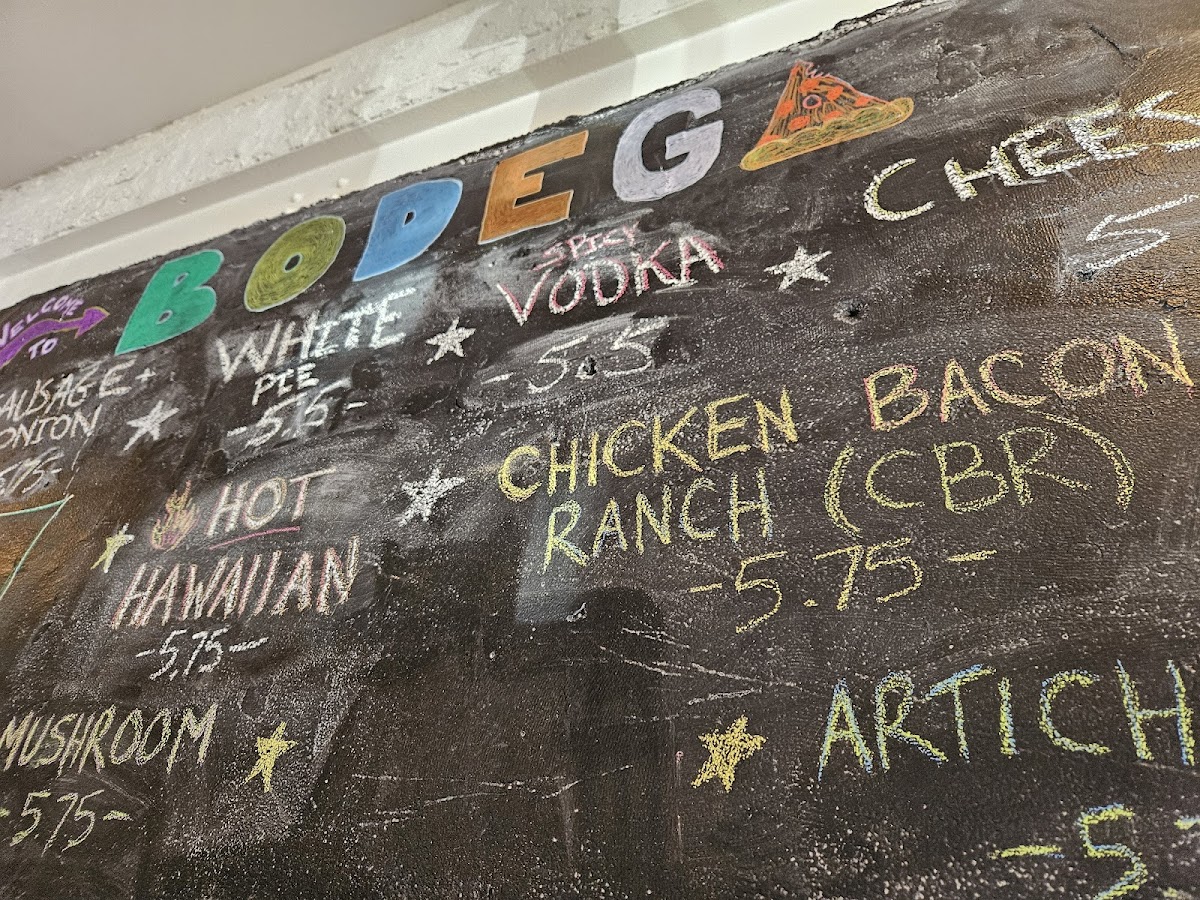 WELCOME
TO
BODEG
CHEES
5
SPICY
VODKA
-5.5
WHITE
PIE
-5.5-
SAUSAGE+
ONION
BACON
CHICKEN
RANCH (CBR)
-5.75-
HOT
HAWAIIAN
-5.75-
MUSHROOM
-5.75-
ARTICH
-5